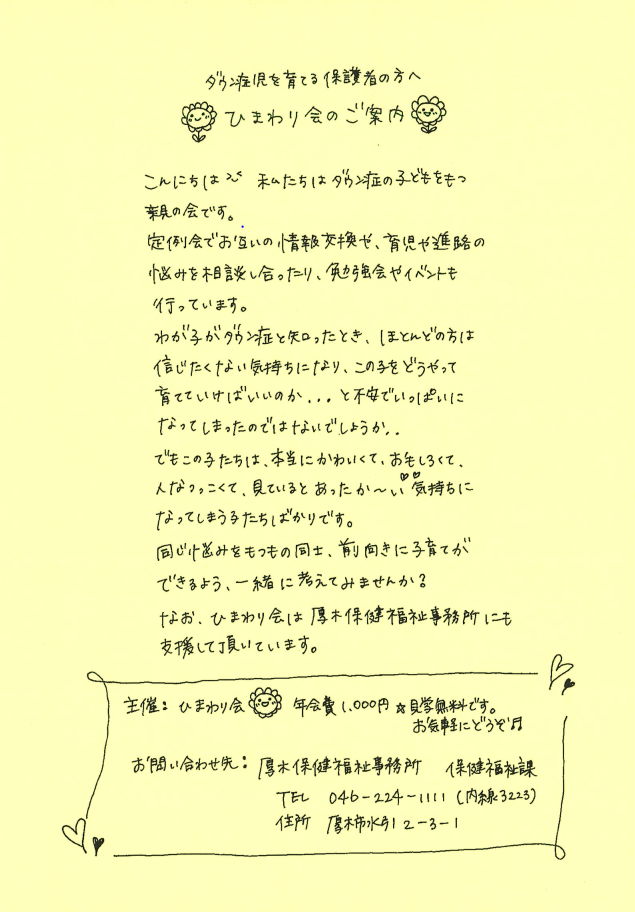 ダウン症児を育てる保護者の方へ
ひまわり会のご案内
こんにちは 私たちはダウン症の子どもをもつ
親の会です。
定例会でお互いの情報交換や、育児や進路の
悩みを相談し合ったり、勉強会やイベントも
行っています。
わが子がダウン症と知ったとき、ほとんどの方は
信じたくない気持ちになり、この子をどうやって
育てていけばいいのか...と不安でいっぱいに
なってしまったのではないでしょうか..
でもこの子たちは、本当にかわいくて、おもしろくて、
人なつっこくて、見ているとあったか〜い♡♡気持ちに
なってしまう子たちばかりです。
同じ悩みをもつもの同士、前向きに子育てが
できるよう、一緒に考えてみませんか?
なお、ひまわり会は厚木保健福祉事務所にも
支援して頂いています。
主催:ひまわり会 年会費1,000円 ☆見学無料です。
お気軽にどうぞ♫
お問い合わせ先:厚木保健福祉事務所 保健福祉課
TEL 046-224-1111(内線3223)
住所 厚木市水引2-3-1